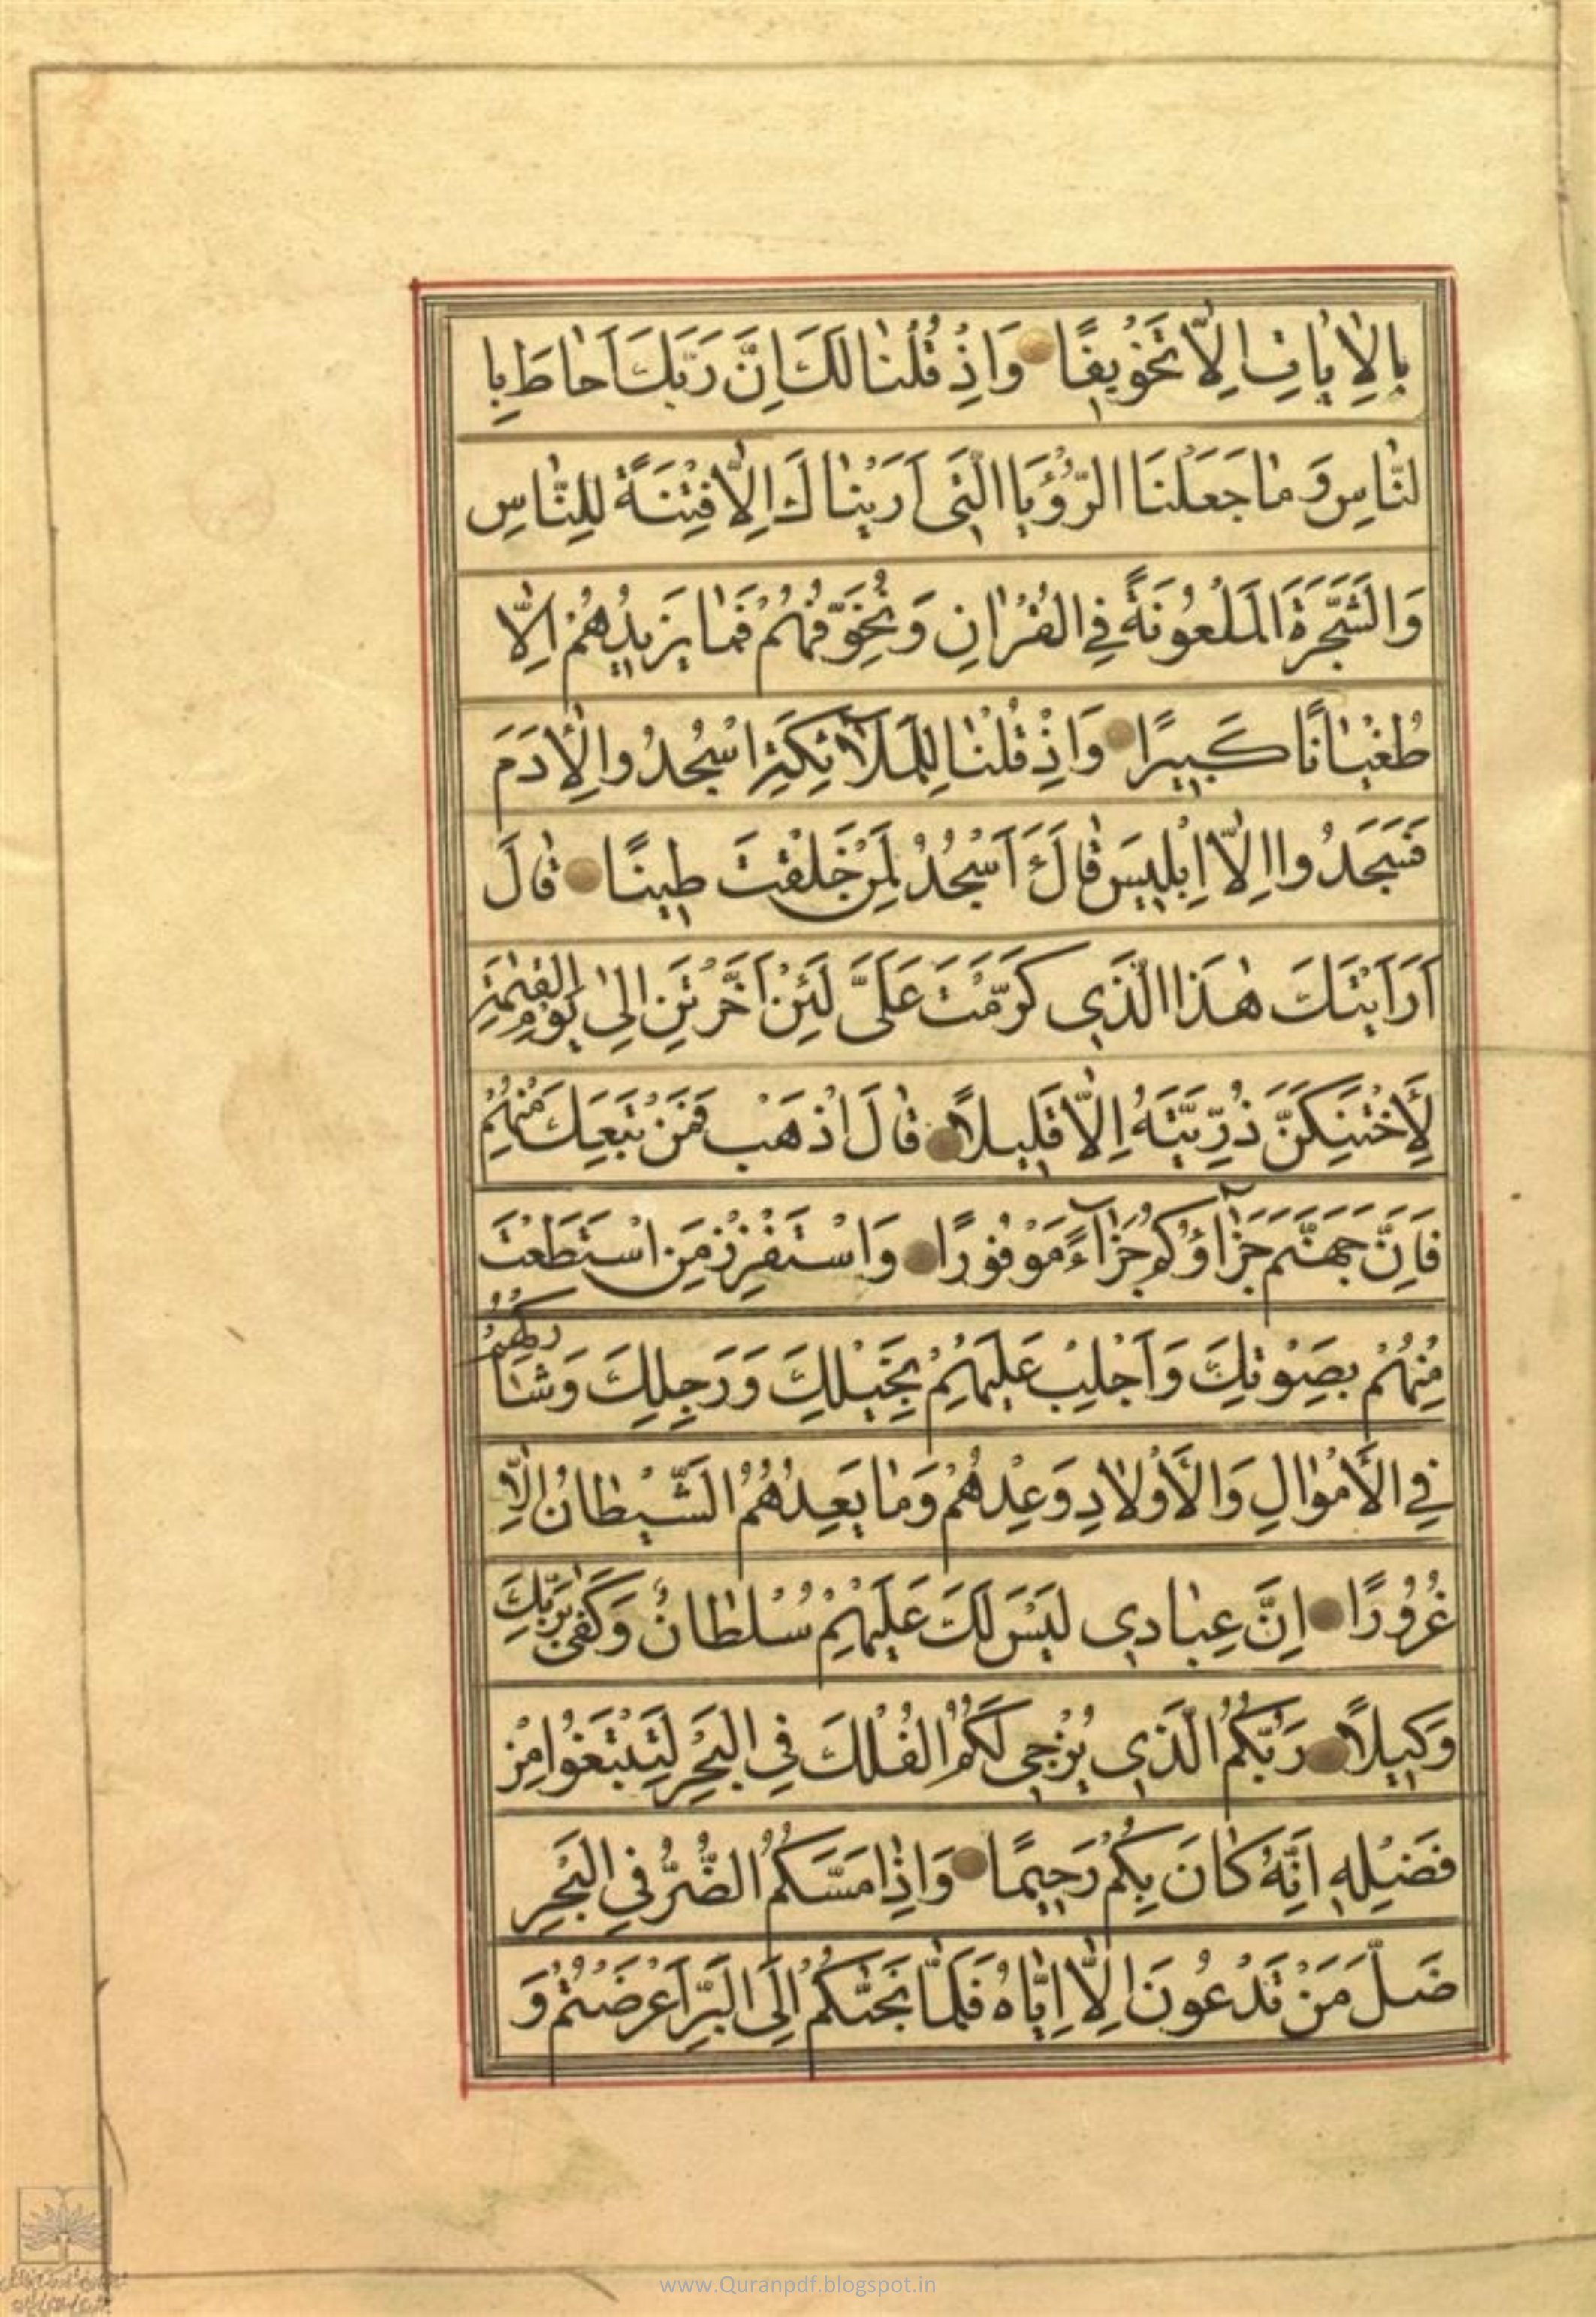 بِالْاٰيٰاتِ اِلّٰا تَخْوٖيفًا وَاِذْ قُلْنٰا لَكَ اِنَّ رَبَّكَ اَحٰاطَ بِا
لنّٰاسِ وَ مٰا جَعَلْنَا الرُّؤْيَا الَّتٖى اَرَيْنٰاكَ اِلّٰا فِتْنَةً لِلنّٰاسِ
وَالشَّجَرَةَ الْمَلْعُونَةَ فِي الْقُرْاٰنِ وَنُخَوِّفُهُمْ فَمٰا يَزٖيدُهُمْ اِلّٰا
طُغْيٰانًا كَبٖيرًا وَاِذْ قُلْنٰا لِلْمَلٰآئِكَةِ اسْجُدُوا لِاٰدَمَ
فَسَجَدُوا اِلّٰا اِبْلٖيسَ قٰالَ ءَاَسْجُدُ لِمَنْ خَلَقْتَ طٖينًا قٰالَ
اَرَاَيْتَكَ هٰذَا الَّذٖى كَرَّمْتَ عَلَىَّ لَئِنْ اَخَّرْتَنِ اِلٰى يَوْمِ الْقِيٰمَةِ
لَأَحْتَنِكَنَّ ذُرِّيَّتَهُ اِلّٰا قَلٖيلًا قٰالَ اذْهَبْ فَمَنْ تَبِعَكَ مِنْهُمْ
فَاِنَّ جَهَنَّمَ جَزٰاؤُكُمْ جَزٰآءً مَوْفُورًا وَاسْتَفْزِزْ مَنِ اسْتَطَعْتَ
مِنْهُمْ بِصَوْتِكَ وَاَجْلِبْ عَلَيْهِمْ بِخَيْلِكَ وَرَجِلِكَ وَشٰارِكْهُمْ
فِي الْأَمْوٰالِ وَالْأَوْلٰادِ وَعِدْهُمْ وَمٰا يَعِدُهُمُ الشَّيْطٰانُ اِلّٰا
غُرُورًا اِنَّ عِبٰادٖى لَيْسَ لَكَ عَلَيْهِمْ سُلْطٰانٌ وَكَفٰى بِرَبِّكَ
وَكٖيلًا رَبُّكُمُ الَّذٖى يُزْجٖى لَكُمُ الْفُلْكَ فِي الْبَحْرِ لِتَبْتَغُوا مِنْ
فَضْلِهٖ اِنَّهُ كٰانَ بِكُمْ رَحٖيمًا وَاِذٰا مَسَّكُمُ الضُّرُّ فِي الْبَحْرِ
ضَلَّ مَنْ تَدْعُونَ اِلّٰا اِيّٰاهُ فَلَمّٰا نَجّٰىكُمْ اِلَى الْبَرِّ اَعْرَضْتُمْ وَ
www.Quranpdf.blogspot.in